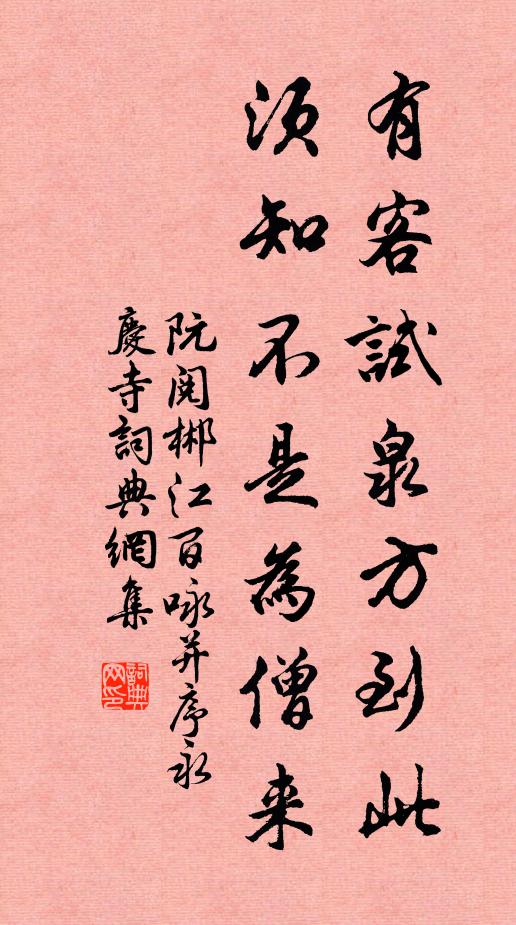 有客試泉方到此
須知不是為僧来
阮閱郴江百咏并序永
慶寺詞典網集
詞典網印